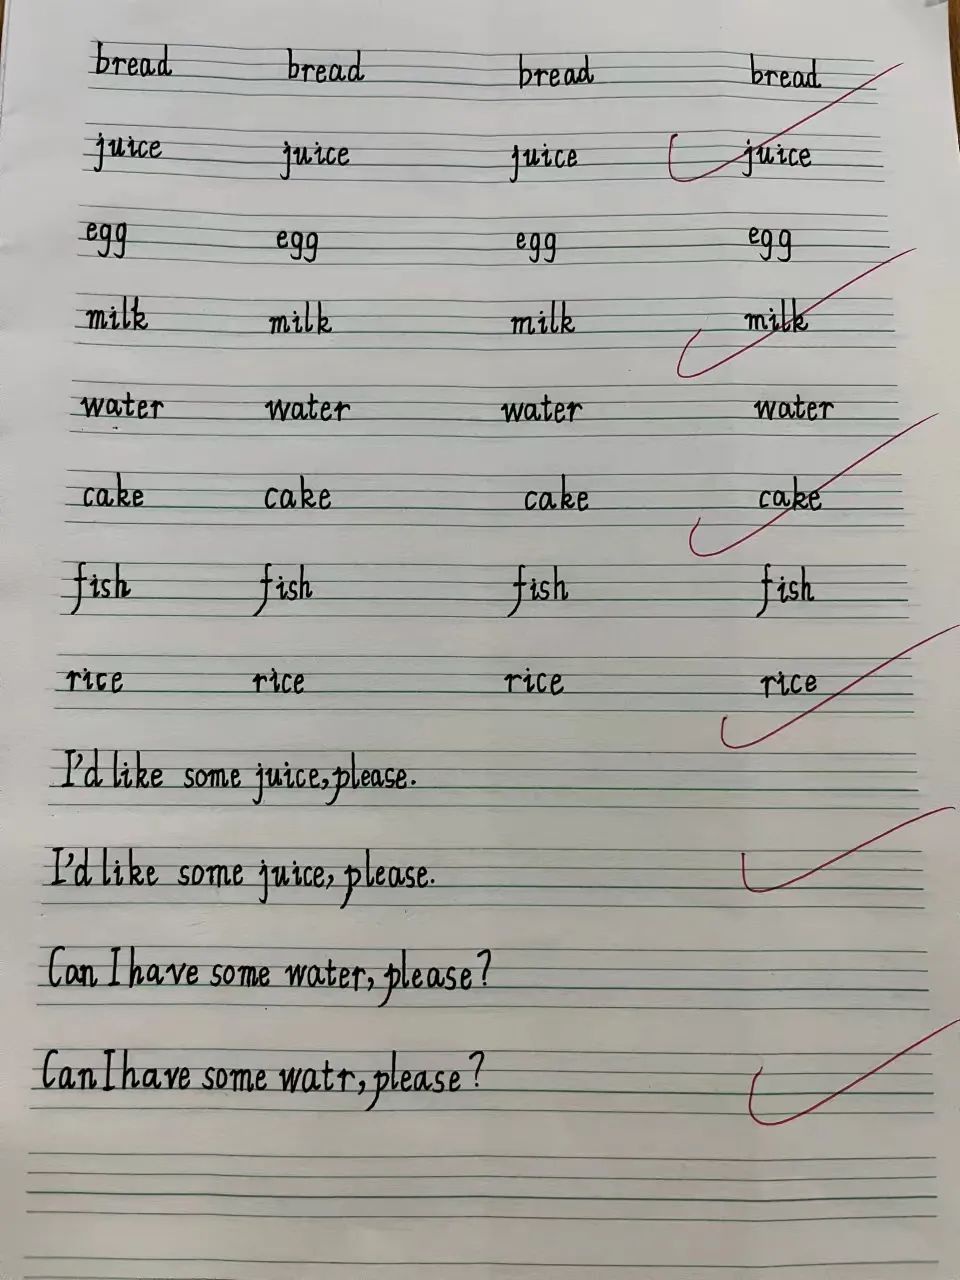 bread bread bread bread
juice juice juice juice
egg egg egg egg
milk milk milk milk
water water water water
cake cake cake cake
fish fish fish fish
rice rice rice rice
I'd like some juice,please.
I'd like some juice, please.
Can I have some water, please?
Can I have some watr, please?